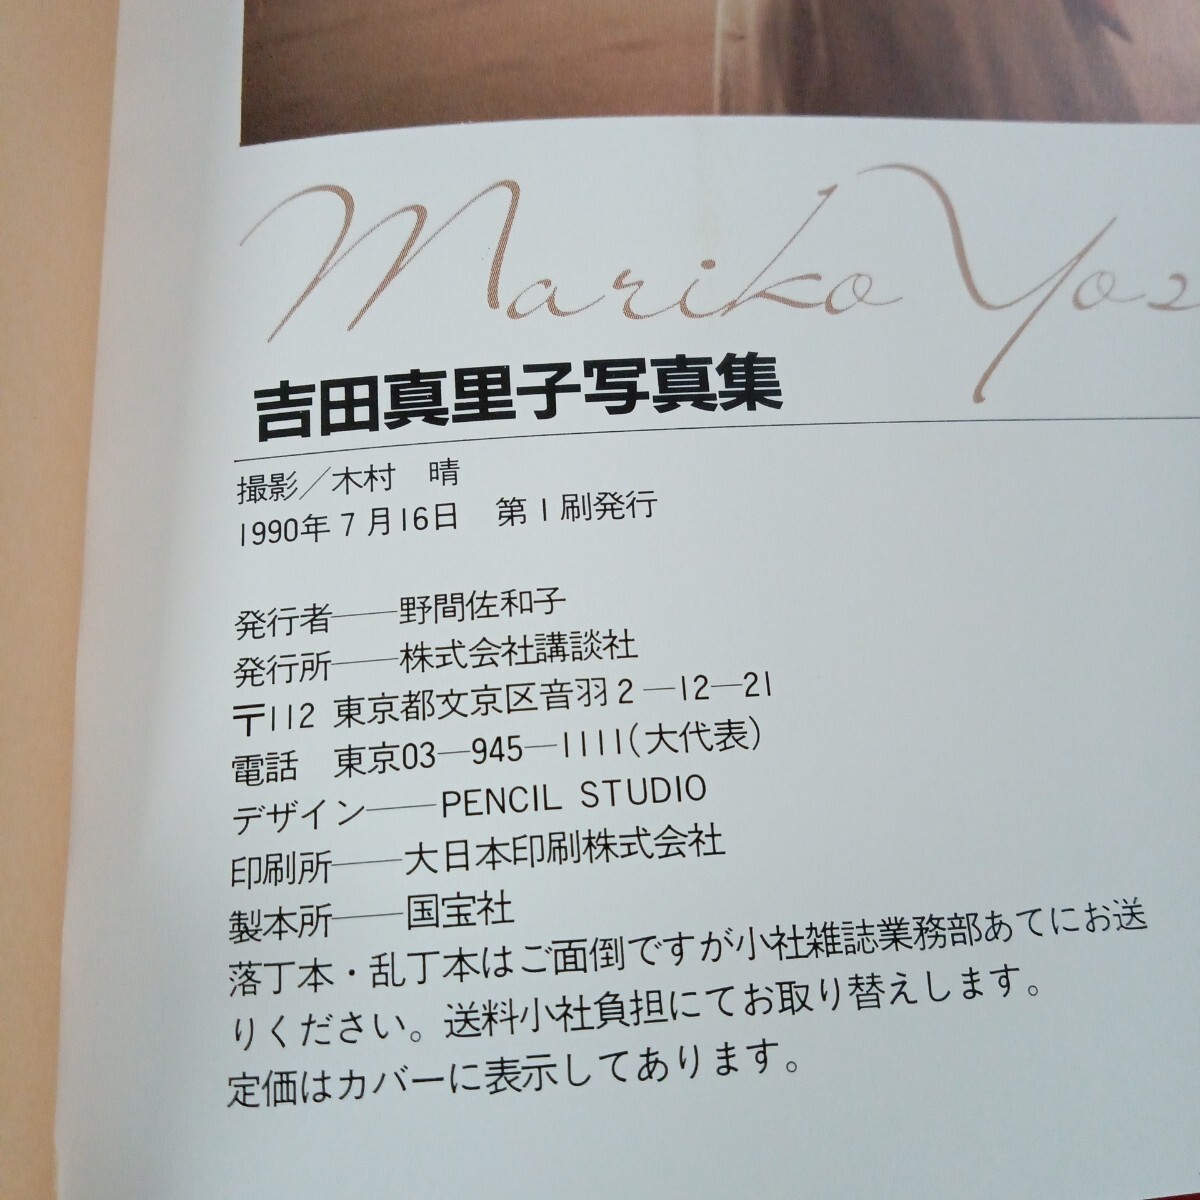 Mariko Yos
吉田真里子写真集
撮影／木村　晴
1990年7月16日　第1刷発行
発行者——野間佐和子
発行所——株式会社講談社
〒112 東京都文京区音羽2—12—21
電話　東京03—945—1111(大代表)
デザイン——PENCIL STUDIO
印刷所——大日本印刷株式会社
製本所——国宝社
落丁本・乱丁本はご面倒ですが小社雑誌業務部あてにお送
りください。送料小社負担にてお取り替えします。
定価はカバーに表示してあります。